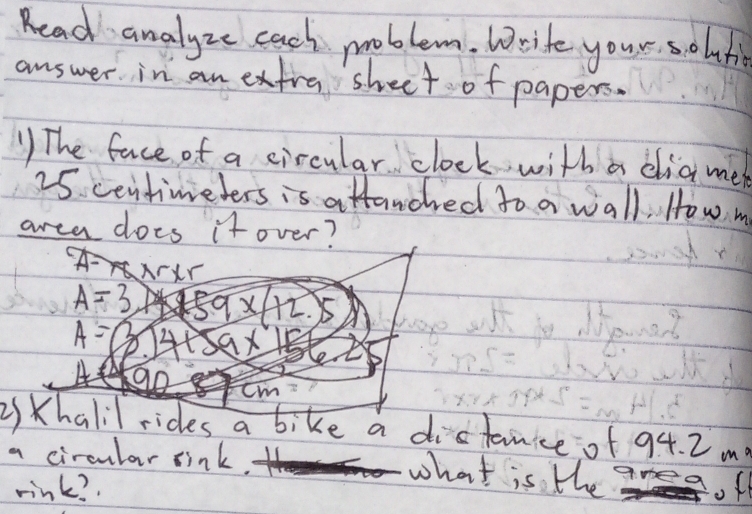 Read analyze each problem. Write your solutio
answer in an extra sheet of papers.
1) The face of a circular clock with a diamete
25 centimeters is attanched to a wall. How m
area does it over?
A= π x r x r
A= 3.14159 x (12.5)
A= 3.14159 x 156.25
A= 490.87 cm²
2) Khalil rides a bike a distance of 94.2 m a
a circular rink. what is the area of t
rink?